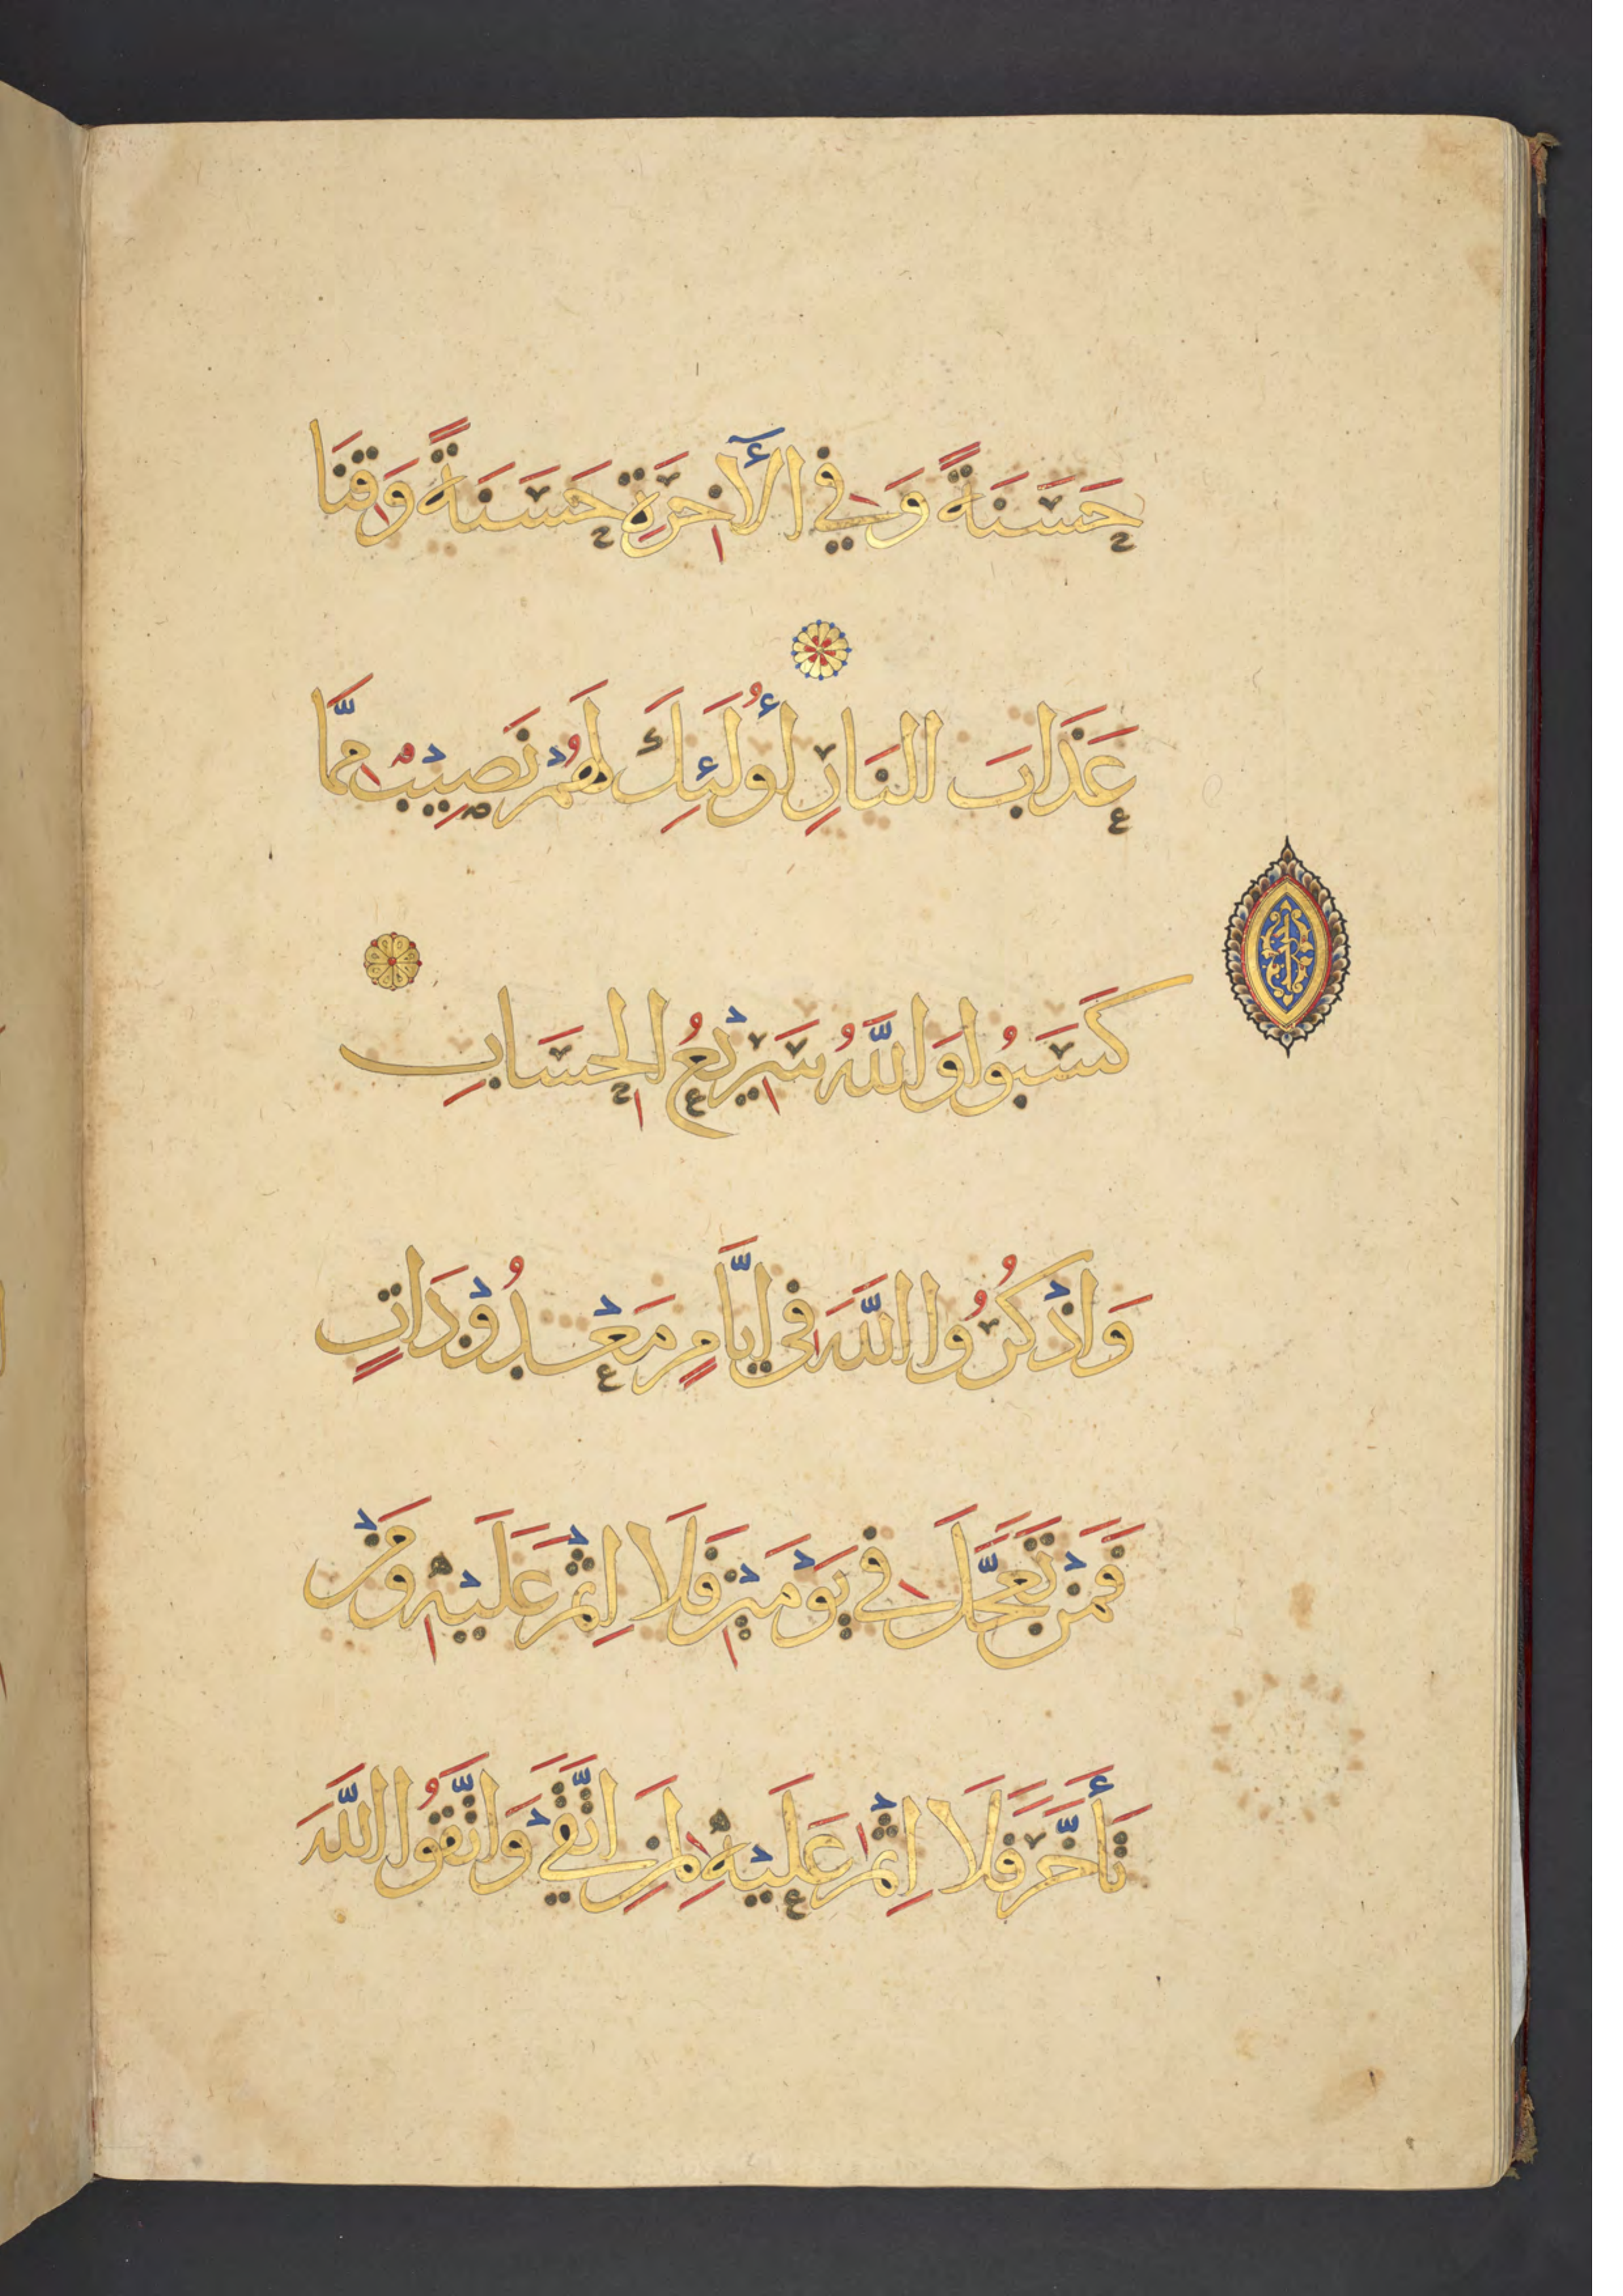 حَسَنَةً وَفِي الْآخِرَةِ حَسَنَةً وَقِنَا
عَذَابَ النَّارِ أُولَئِكَ لَهُمْ نَصِيبٌ مِمَّا
كَسَبُوا وَاللَّهُ سَرِيعُ الْحِسَابِ
وَاذْكُرُوا اللَّهَ فِي أَيَّامٍ مَعْدُودَاتٍ
فَمَنْ تَعَجَّلَ فِي يَوْمَيْنِ فَلَا إِثْمَ عَلَيْهِ وَمَنْ
تَأَخَّرَ فَلَا إِثْمَ عَلَيْهِ لِمَنِ اتَّقَى وَاتَّقُوا اللَّهَ